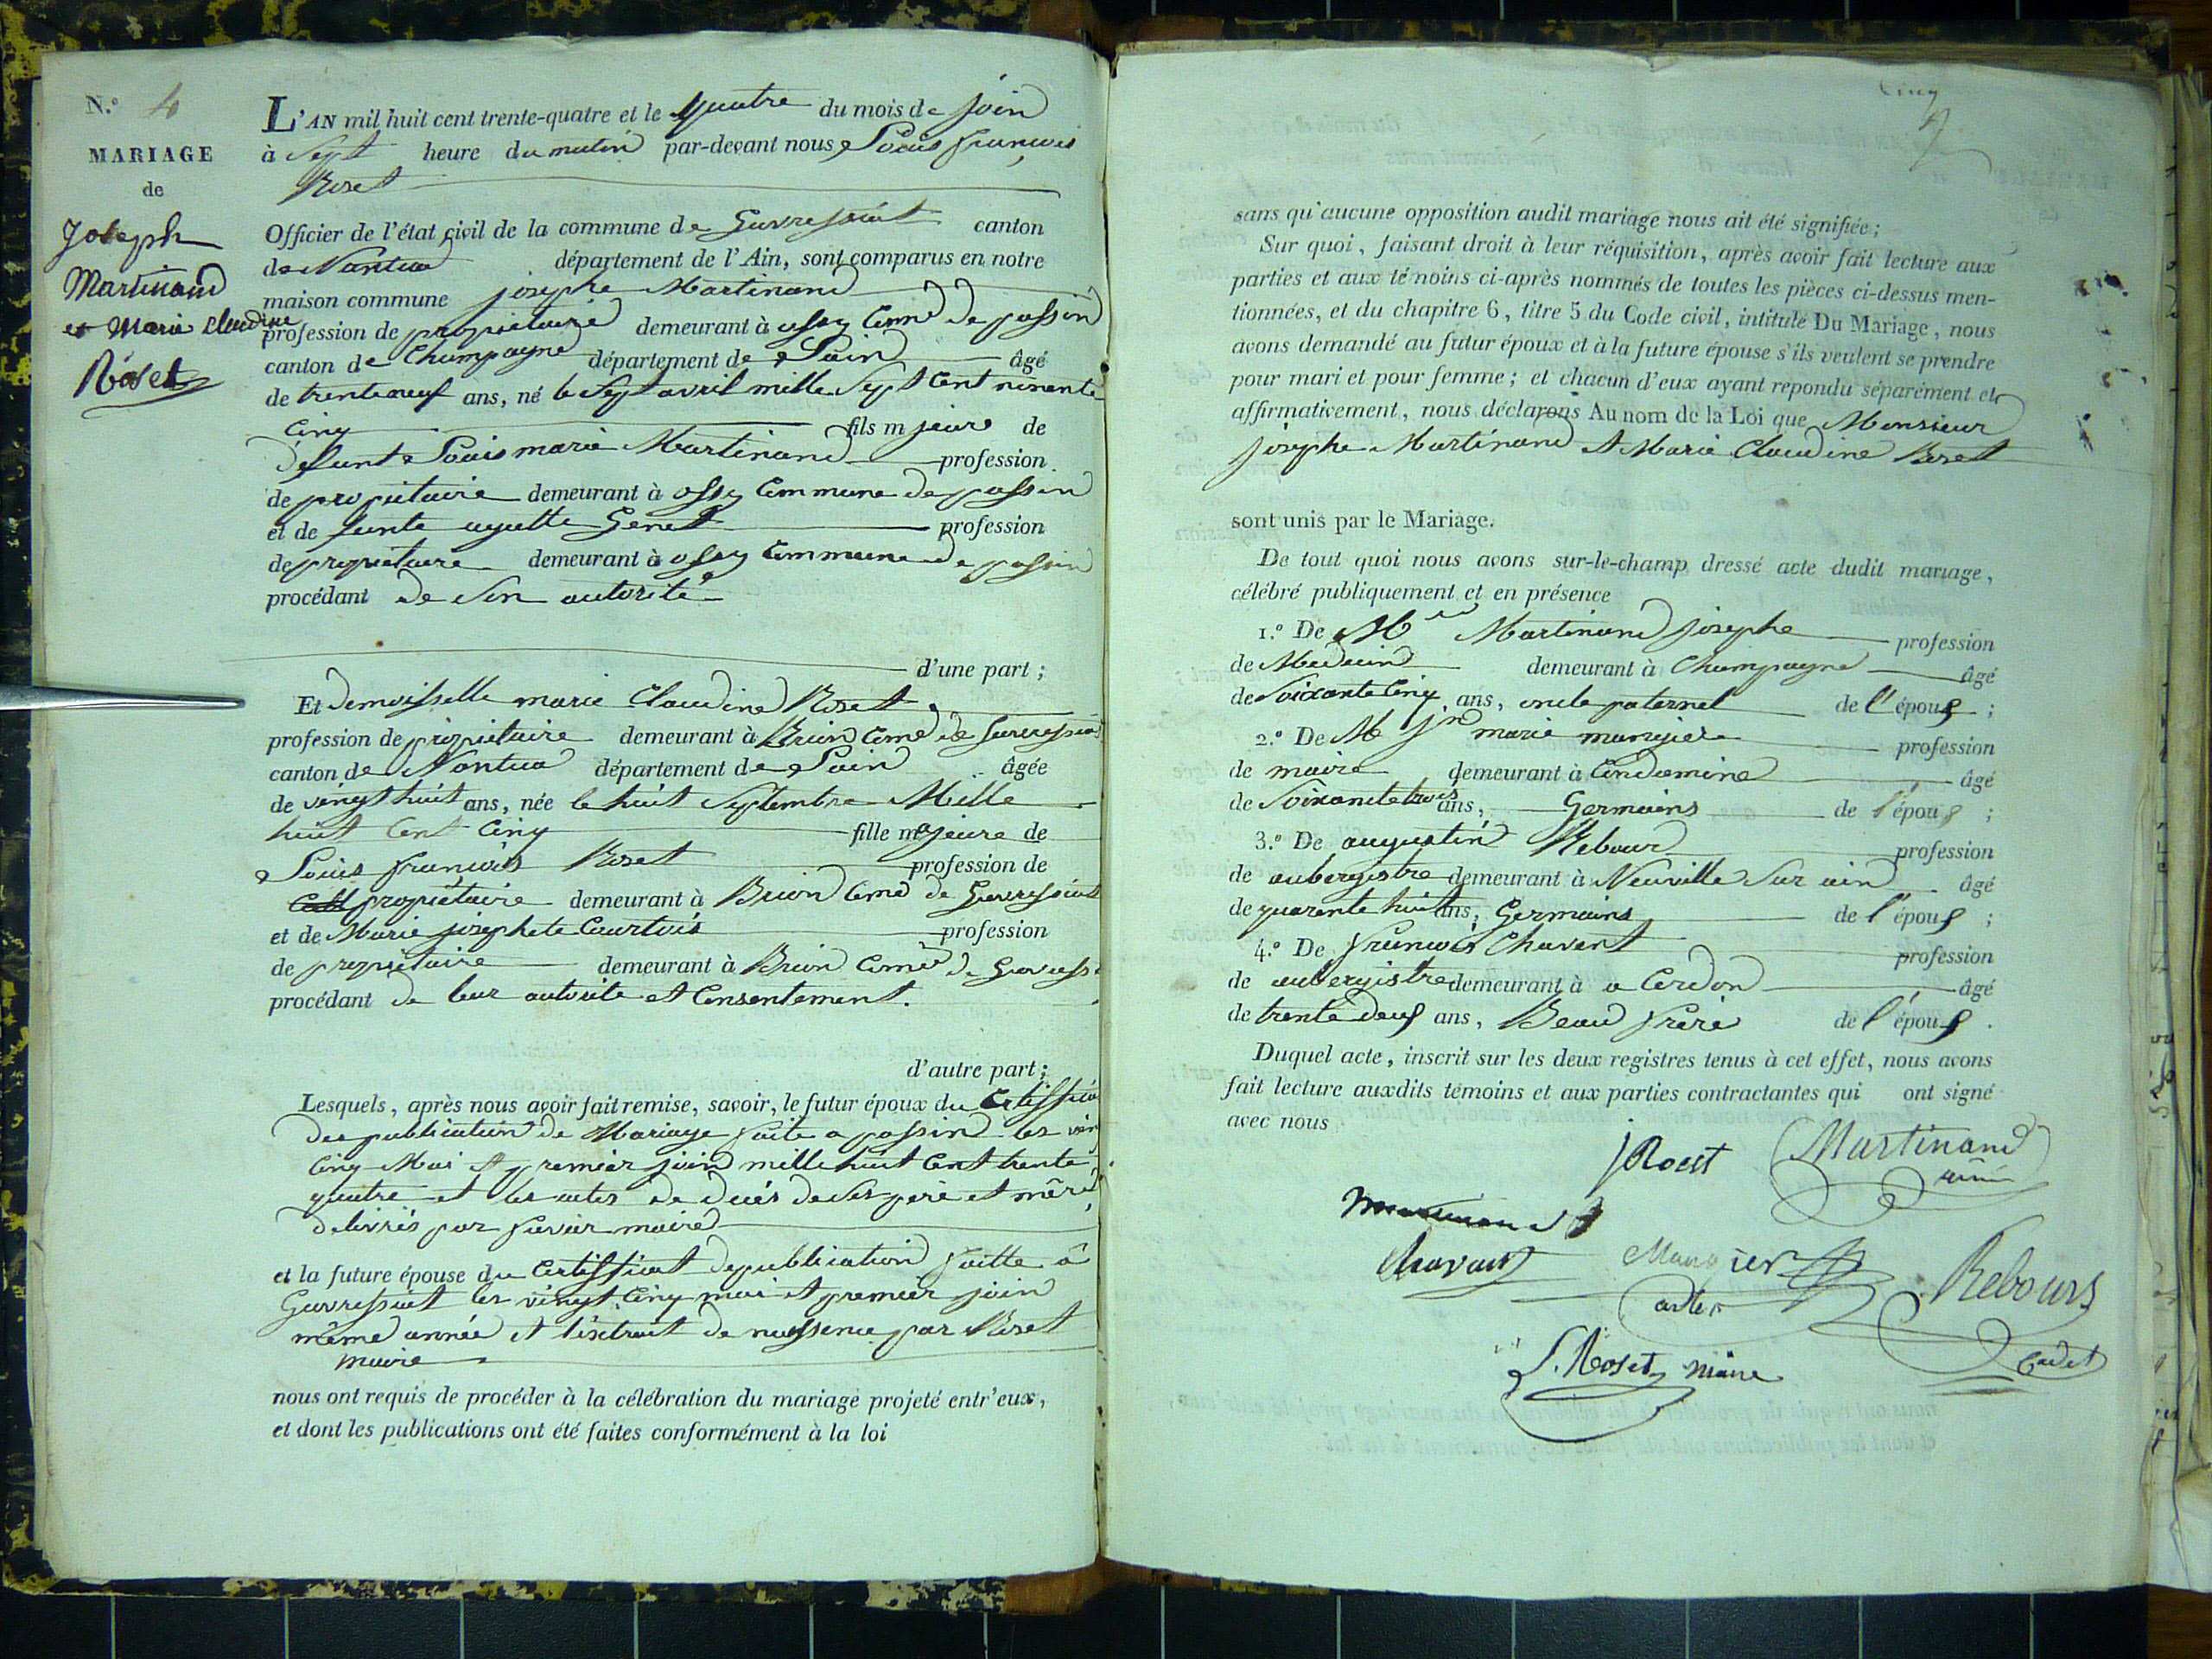 N.º 4
MARIAGE
de
Joseph
Martinand
et Marie Claudine
Roset
L'AN mil huit cent trente-quatre et le quatre du mois de join
à Sept heure du matin par-devant nous Louis françois
Roset
Officier de l'état civil de la commune de Gevressiat canton
de Nantua département de l'Ain, sont comparus en notre
maison commune josephe Martinand
profession de propriétaire demeurant à ossy Comne de passin
canton de Champagne département de Lain âgé
de trente neuf ans, né le Sept avril mille Sept Cent nonante
Cinq fils m jeure de
défunt Louis marie Martinand profession
de propriétaire demeurant à ossy Commune de passin
et de funte Genet profession
de propriétaire demeurant à ossy Commune de passin
procédant de Son autorité
d'une part ;
Et demoisselle marie Claudine Roset
profession de propriétaire demeurant à Brion Comne de Gevressiat
canton de Nantua département de Lain âgée
de vingt huit ans, née le huit Septembre Mille
huit Cent Cinq fille majeure de
Louis françois Roset profession de
propriétaire demeurant à Brion Comne de Gevressiat
et de Marie josephete Courtois profession
de propriétaire demeurant à Brion Comne de Gevress
procédant de leur autorité et Consentement.
d'autre part ;
Lesquels, après nous avoir fait remise, savoir, le futur époux du Certifficat
des publication de Mariage faite a passin les vin
Cinq Mai et premier join mille huit Cent trente
quatre et les actes de décés de Ses pere et mère
delivrés par favier maire
et la future épouse du Certifficat de publication faitte à
Gevressiat les vingt Cinq mai et premier join
même année et l'éxtrait de naissence par Roset
maire
nous ont requis de procéder à la célébration du mariage projeté entr'eux,
et dont les publications ont été faites conformément à la loi
Cinq
sans qu'aucune opposition audit mariage nous ait été signifiée ;
Sur quoi, faisant droit à leur réquisition, après avoir fait lecture aux
parties et aux témoins ci-après nommés de toutes les pièces ci-dessus men-
tionnées, et du chapitre 6, titre 5 du Code civil, intitulé Du Mariage, nous
avons demandé au futur époux et à la future épouse s'ils veulent se prendre
pour mari et pour femme ; et chacun d'eux ayant repondu séparément et
affirmativement, nous déclarons Au nom de la Loi que Monsieur
josephe Martinand et Marie Claudine Roset
sont unis par le Mariage.
De tout quoi nous avons sur-le-champ dressé acte dudit mariage,
célébré publiquement et en présence
1.º De Mr Martinand josephe profession
de Medecin demeurant à Champagne âgé
de Soixante Cinq ans, oncle paternel de l'épous ;
2.º De M jn marie mangier profession
de maire demeurant à Condamine âgé
de Soixante trois ans, Germains de l'épous ;
3.º De augustin Rebour profession
de aubergistre demeurant à Neuville Sur ain âgé
de quarente huit ans, Germains de l'épous ;
4.º De françois Chavent profession
de aubergistre demeurant à a Cerdon âgé
de trente deux ans, Beau frere de l'épous .
Duquel acte, inscrit sur les deux registres tenus à cet effet, nous avons
fait lecture auxdits témoins et aux parties contractantes qui ont signé
avec nous
jRoest Martinand
ainé
Chavant Mangier Rebours
Cadet
L. Roset maire